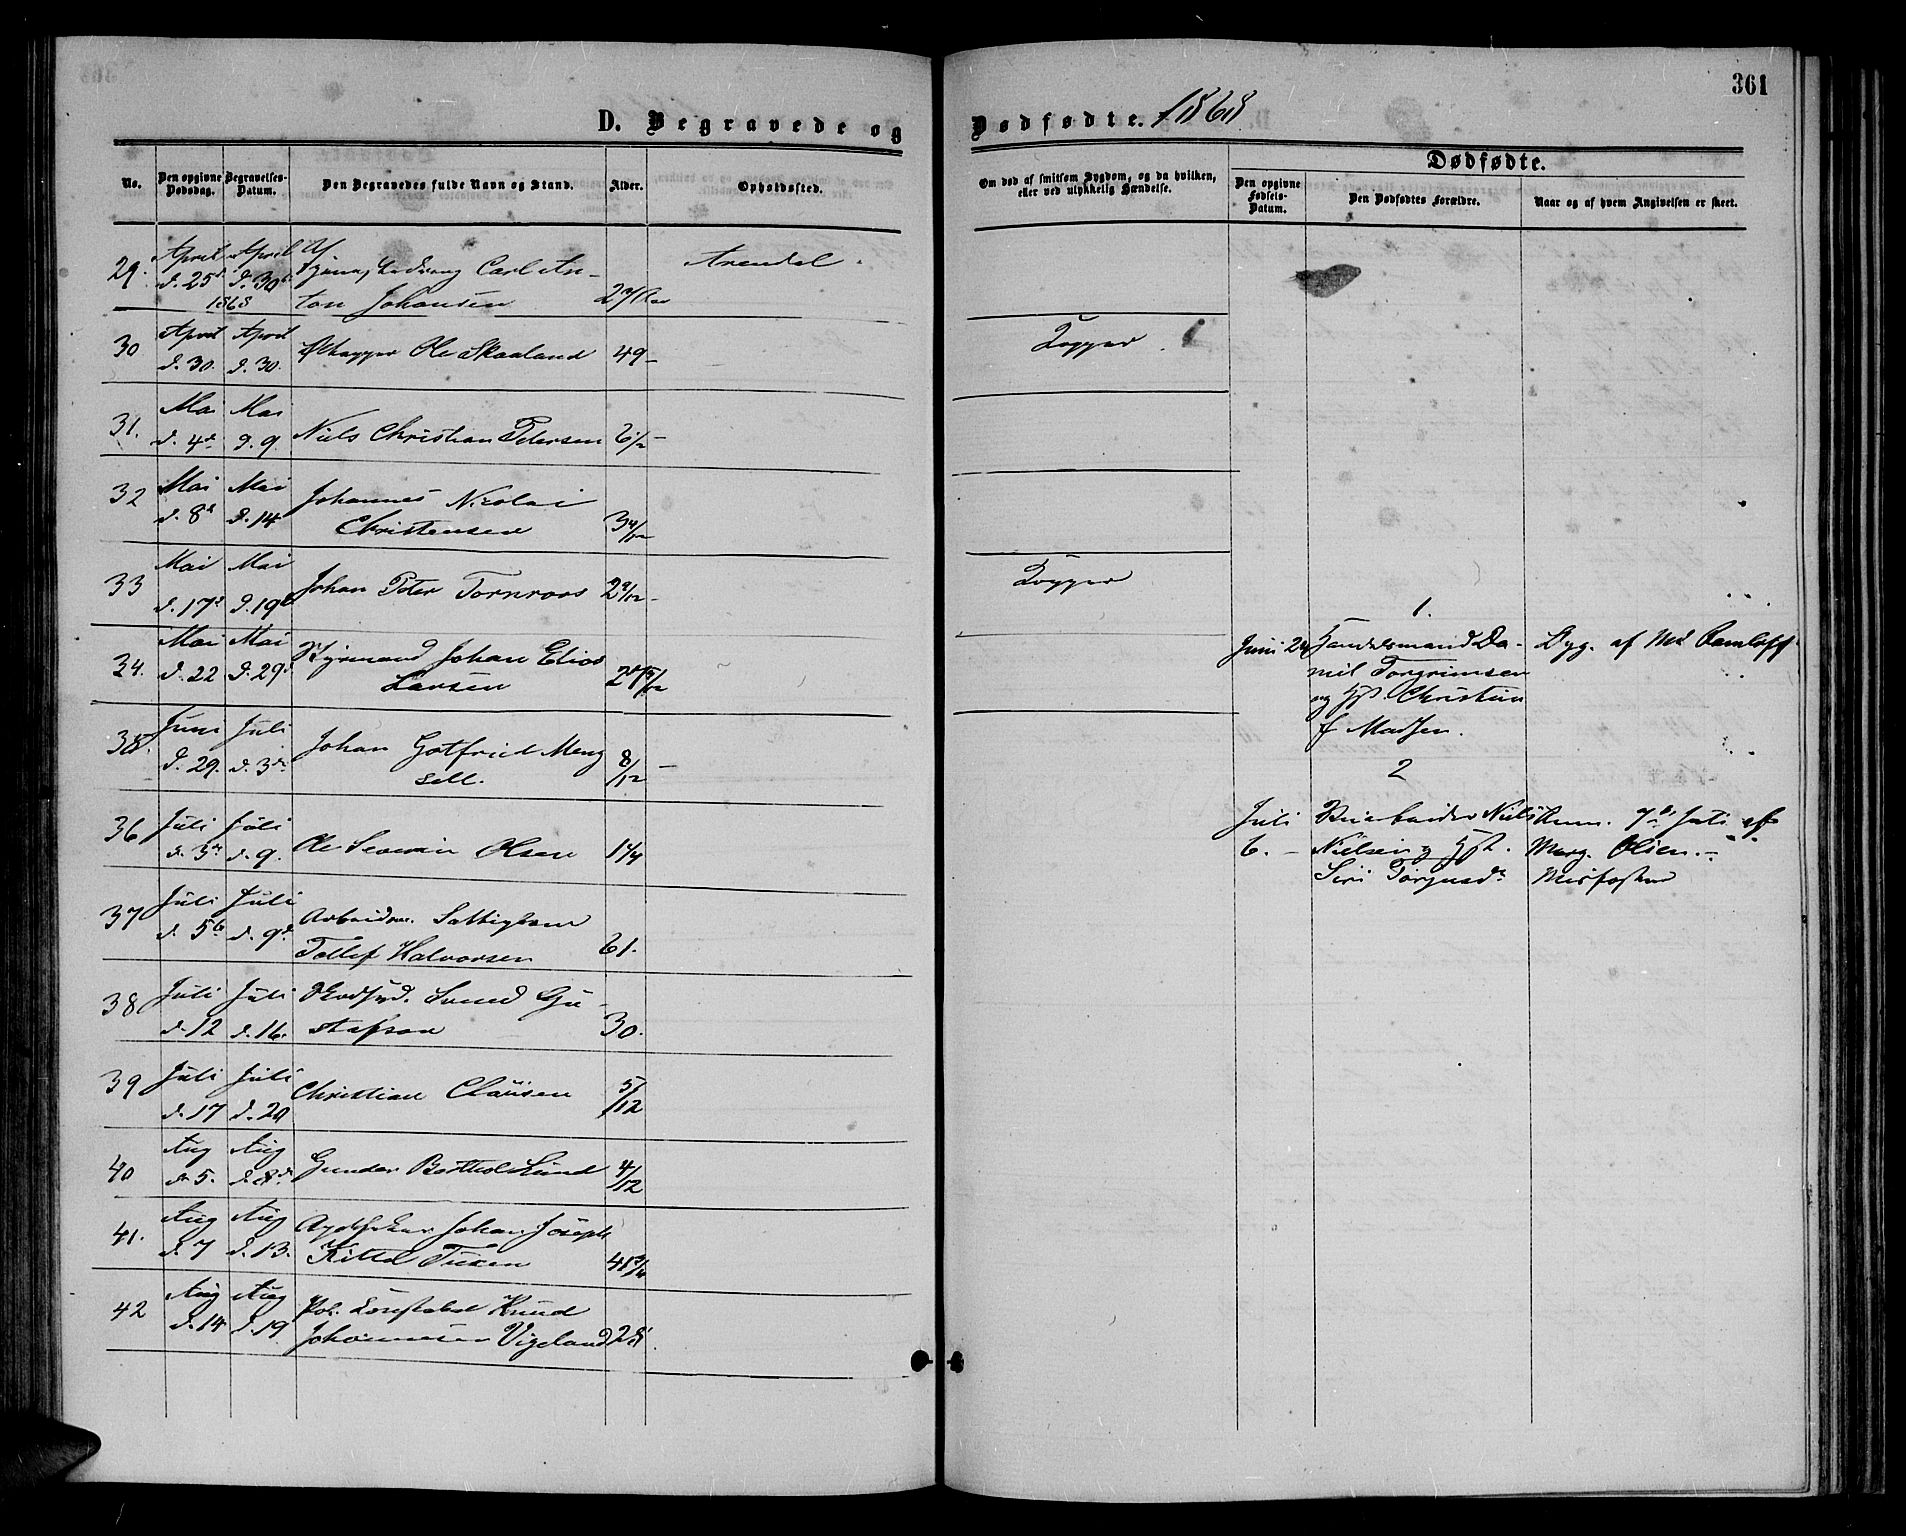 361
D. Begravede og Dødfødte. 1868
Dødfødte.
No.
Den opgivne Dødsdag.
Begravelses-Datum.
Den Begravedes fulde Navn og Stand.
Alder.
Opholdssted.
Om død af smitsom Sygdom, og da hvilken,
eller ved ulykkelig Hændelse.
Den opgivne Fødsels-Datum.
Den Dødfødtes Forældre.
Naar og af hvem Angivelsen er skeet.
29. April April
d. 25 d. 30 Ludvig Carl An- Arendal.
1868 ton Johansen
30 April April
d. 30. d. 30. Ole Skaaland 49-
31. Mai Mai
d. 4 d. 9. Niels Christian Petersen 6/12 -
32 Mai Mai Johannes Nicolai
d. 8 d. 14 Christensen 3 4/12
33 Mai Mai
d. 17 d. 19 Johan Peter Tornroos 2 9/12 -
34. Mai Mai Styrmand Johan Elias
d. 22 d. 29 Larsen
35. Juni Juli Johan Gotfried Meng
d. 29. d. 3 sell. 8/12 -
36 Juli Juli
d. 3 d. 9. Ole Severin Olsen 1 1/4
37 Juli Juli Arbeidsm.
d. 5 d. 9 Tollef Halvorsen 61.
38 Juli Juli Svend Gu-
d. 12 d. 16. stafson 30.
39 Juli Juli
d. 17 d. 20 Christian Clausen 5/12
40 Aug Aug
d. 5. d. 8 Gunder Berthol Lund 4/12
41. Aug Aug Johan Joseph
d. 7 d. 13. Kittel Tuxen
42 Aug Aug Pol. Konstabel Knud
d. 14 d. 19 Johannesen Vigeland 28.
1.
Juni 24 Handelsmand Da- af Md
niel Torgrimsen
og Hst. Christian
f Madsen.
2
Juli Niels 7 Juli af
6. - Nielsen og Hst. Marg. Olsen. -
Siri